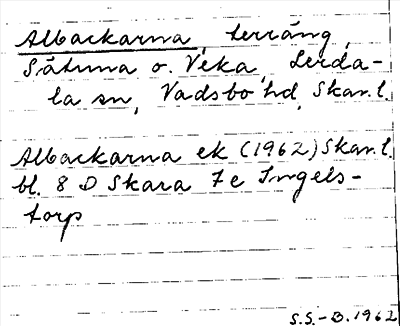 Albackarna, terräng,
Såtuna o. Veka, Lerda-
la sn, Vadsbo hd, Skar. l.
Albackarna ek (1962) Skar. l.
bl. 8 D Skara 7e Ingels-
torp
S.S.-B. 1962